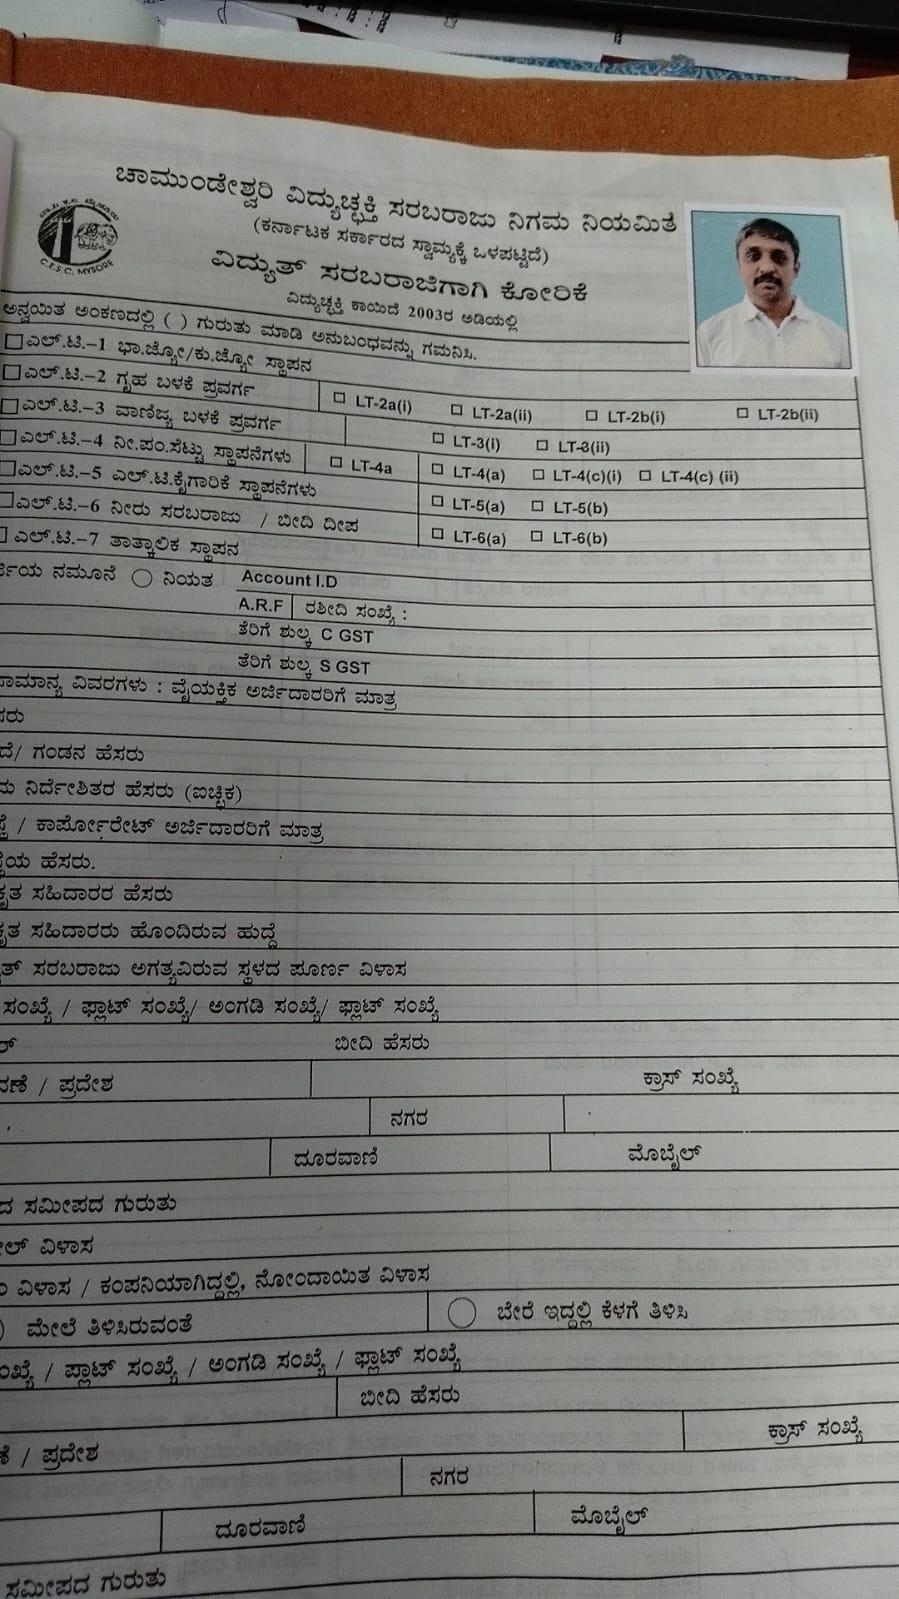 ಚಾಮುಂಡೇಶ್ವರಿ ವಿದ್ಯುಚ್ಛಕ್ತಿ ಸರಬರಾಜು ನಿಗಮ ನಿಯಮಿತ
(ಕರ್ನಾಟಕ ಸರ್ಕಾರದ ಸ್ವಾಮ್ಯಕ್ಕೆ ಒಳಪಟ್ಟಿದೆ)
C.E.S.C, MYSORE
ವಿದ್ಯುತ್ ಸರಬರಾಜಿಗಾಗಿ ಕೋರಿಕೆ
ವಿದ್ಯುಚ್ಛಕ್ತಿ ಕಾಯಿದೆ 2003ರ ಅಡಿಯಲ್ಲಿ
ಅನ್ವಯಿತ ಅಂಕಣದಲ್ಲಿ ( ) ಗುರುತು ಮಾಡಿ ಅನುಬಂಧವನ್ನು ಗಮನಿಸಿ.
ಎಲ್.ಟಿ.-1 ಭಾ.ಜ್ಯೋ/ಕು.ಜ್ಯೋ ಸ್ಥಾಪನ
ಎಲ್.ಟಿ.-2 ಗೃಹ ಬಳಕೆ ಪ್ರವರ್ಗ LT-2a(i) LT-2a(ii) LT-2b(i) LT-2b(ii)
ಎಲ್.ಟಿ.-3 ವಾಣಿಜ್ಯ ಬಳಕೆ ಪ್ರವರ್ಗ LT-3(i) LT-3(ii)
ಎಲ್.ಟಿ.-4 ನೀ.ಪಂ.ಸೆಟ್ಟು ಸ್ಥಾಪನೆಗಳು LT-4a LT-4(a) LT-4(c)(i) LT-4(c) (ii)
ಎಲ್.ಟಿ.-5 ಎಲ್.ಟಿ.ಕೈಗಾರಿಕೆ ಸ್ಥಾಪನೆಗಳು LT-5(a) LT-5(b)
ಎಲ್.ಟಿ.-6 ನೀರು ಸರಬರಾಜು / ಬೀದಿ ದೀಪ LT-6(a) LT-6(b)
ಎಲ್.ಟಿ.-7 ತಾತ್ಕಾಲಿಕ ಸ್ಥಾಪನ
ನಮೂನೆ ನಿಯತ Account I.D
A.R.F ರಶೀದಿ ಸಂಖ್ಯೆ :
ತೆರಿಗೆ ಶುಲ್ಕ C GST
ತೆರಿಗೆ ಶುಲ್ಕ S GST
ವಿವರಗಳು : ವೈಯಕ್ತಿಕ ಅರ್ಜಿದಾರರಿಗೆ ಮಾತ್ರ
/ ಗಂಡನ ಹೆಸರು
ನಿರ್ದೇಶಿತರ ಹೆಸರು (ಐಚ್ಛಿಕ)
/ ಕಾರ್ಪೋರೇಟ್ ಅರ್ಜಿದಾರರಿಗೆ ಮಾತ್ರ
ಹೆಸರು.
ಸಹಿದಾರರ ಹೆಸರು
ಸಹಿದಾರರು ಹೊಂದಿರುವ ಹುದ್ದೆ
ಸರಬರಾಜು ಅಗತ್ಯವಿರುವ ಸ್ಥಳದ ಪೂರ್ಣ ವಿಳಾಸ
ಸಂಖ್ಯೆ / ಫ್ಲಾಟ್ ಸಂಖ್ಯೆ/ ಅಂಗಡಿ ಸಂಖ್ಯೆ/ ಫ್ಲಾಟ್ ಸಂಖ್ಯೆ
ಬೀದಿ ಹೆಸರು
/ ಪ್ರದೇಶ ಕ್ರಾಸ್ ಸಂಖ್ಯೆ
ನಗರ
ದೂರವಾಣಿ ಮೊಬೈಲ್
ಸಮೀಪದ ಗುರುತು
ವಿಳಾಸ
ವಿಳಾಸ / ಕಂಪನಿಯಾಗಿದ್ದಲ್ಲಿ, ನೋಂದಾಯಿತ ವಿಳಾಸ
ಮೇಲೆ ತಿಳಿಸಿರುವಂತೆ ಬೇರೆ ಇದ್ದಲ್ಲಿ ಕೆಳಗೆ ತಿಳಿಸಿ
/ ಪ್ಲಾಟ್ ಸಂಖ್ಯೆ / ಅಂಗಡಿ ಸಂಖ್ಯೆ / ಫ್ಲಾಟ್ ಸಂಖ್ಯೆ
ಬೀದಿ ಹೆಸರು
/ ಪ್ರದೇಶ ಕ್ರಾಸ್ ಸಂಖ್ಯೆ
ನಗರ
ದೂರವಾಣಿ ಮೊಬೈಲ್
ಸಮೀಪದ ಗುರುತು